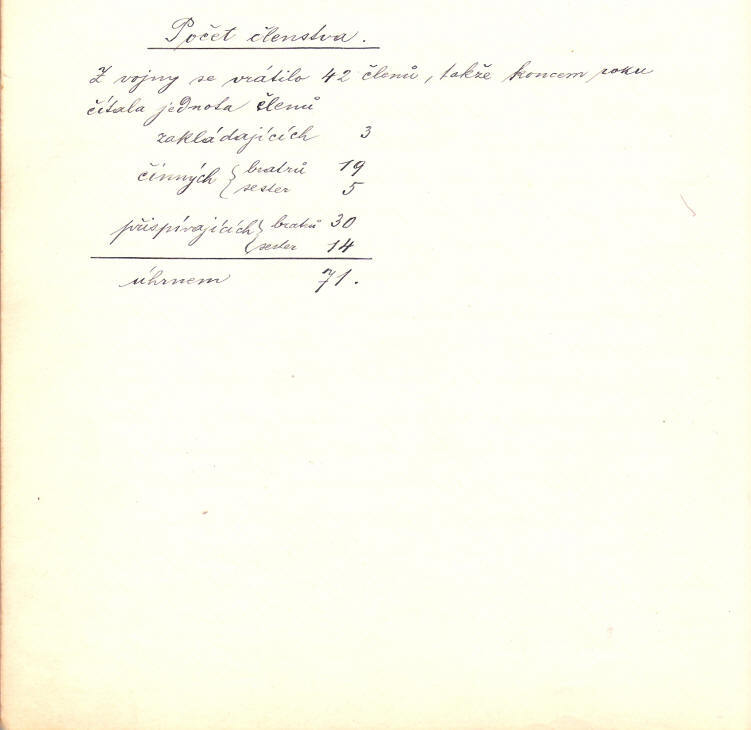 Počet členstva.
Z vojny se vrátilo 42 členů, takže koncem roku
čítala jednota členů
zakládajících 3
činných { bratrů 19
sester 5
přispívajících { bratrů 30
sester 14
úhrnem 71.